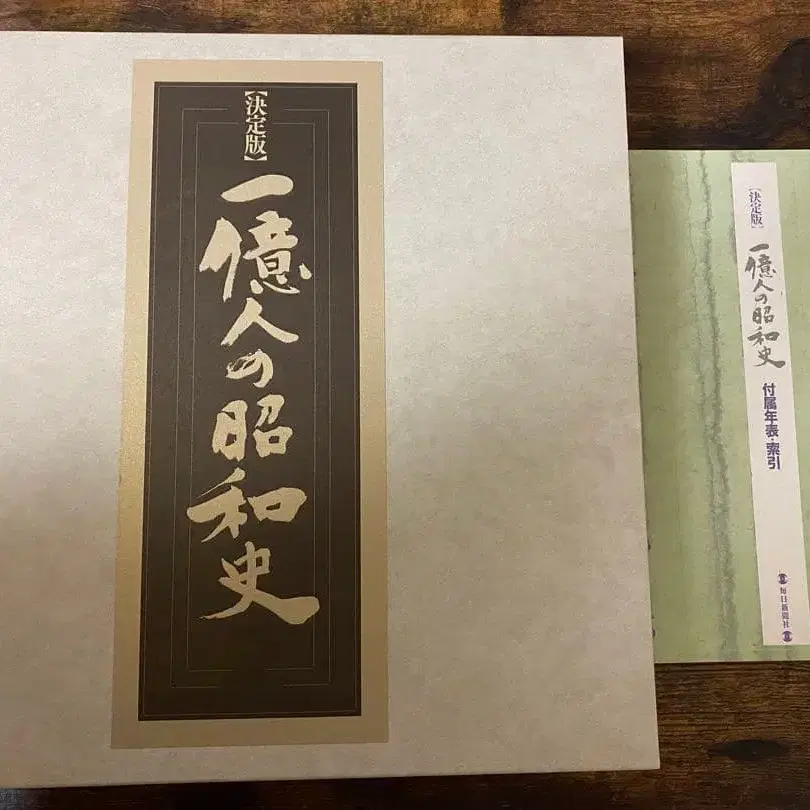 【決定版】
一億人の昭和史
【決定版】
一億人の昭和史
付属年表・索引
毎日新聞社